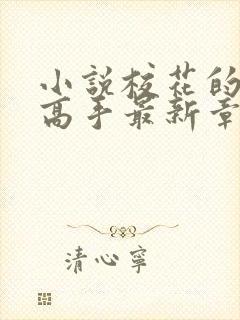 小說校花的
高手最新章
清心寧